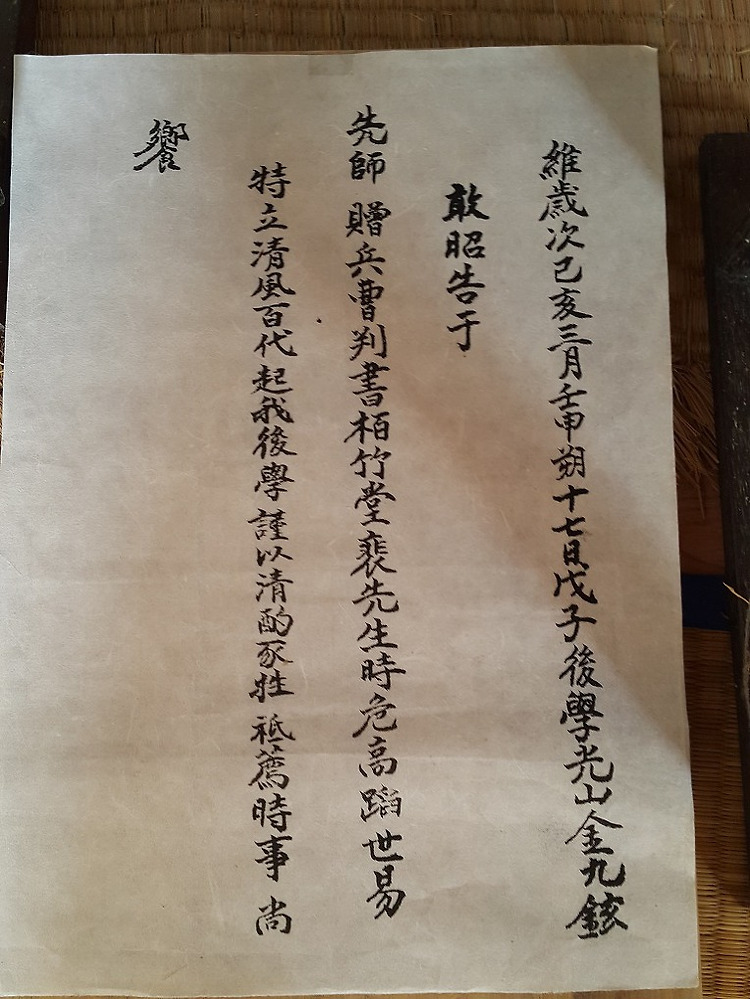 維歲次己亥三月壬申朔十七日戊子後學光山金九鉉
敢昭告于
先師 贈兵曹判書栢竹堂裵先生時危高蹈世易
特立清風百代起我後學謹以清酌豕牲祗薦時事 尚
饗